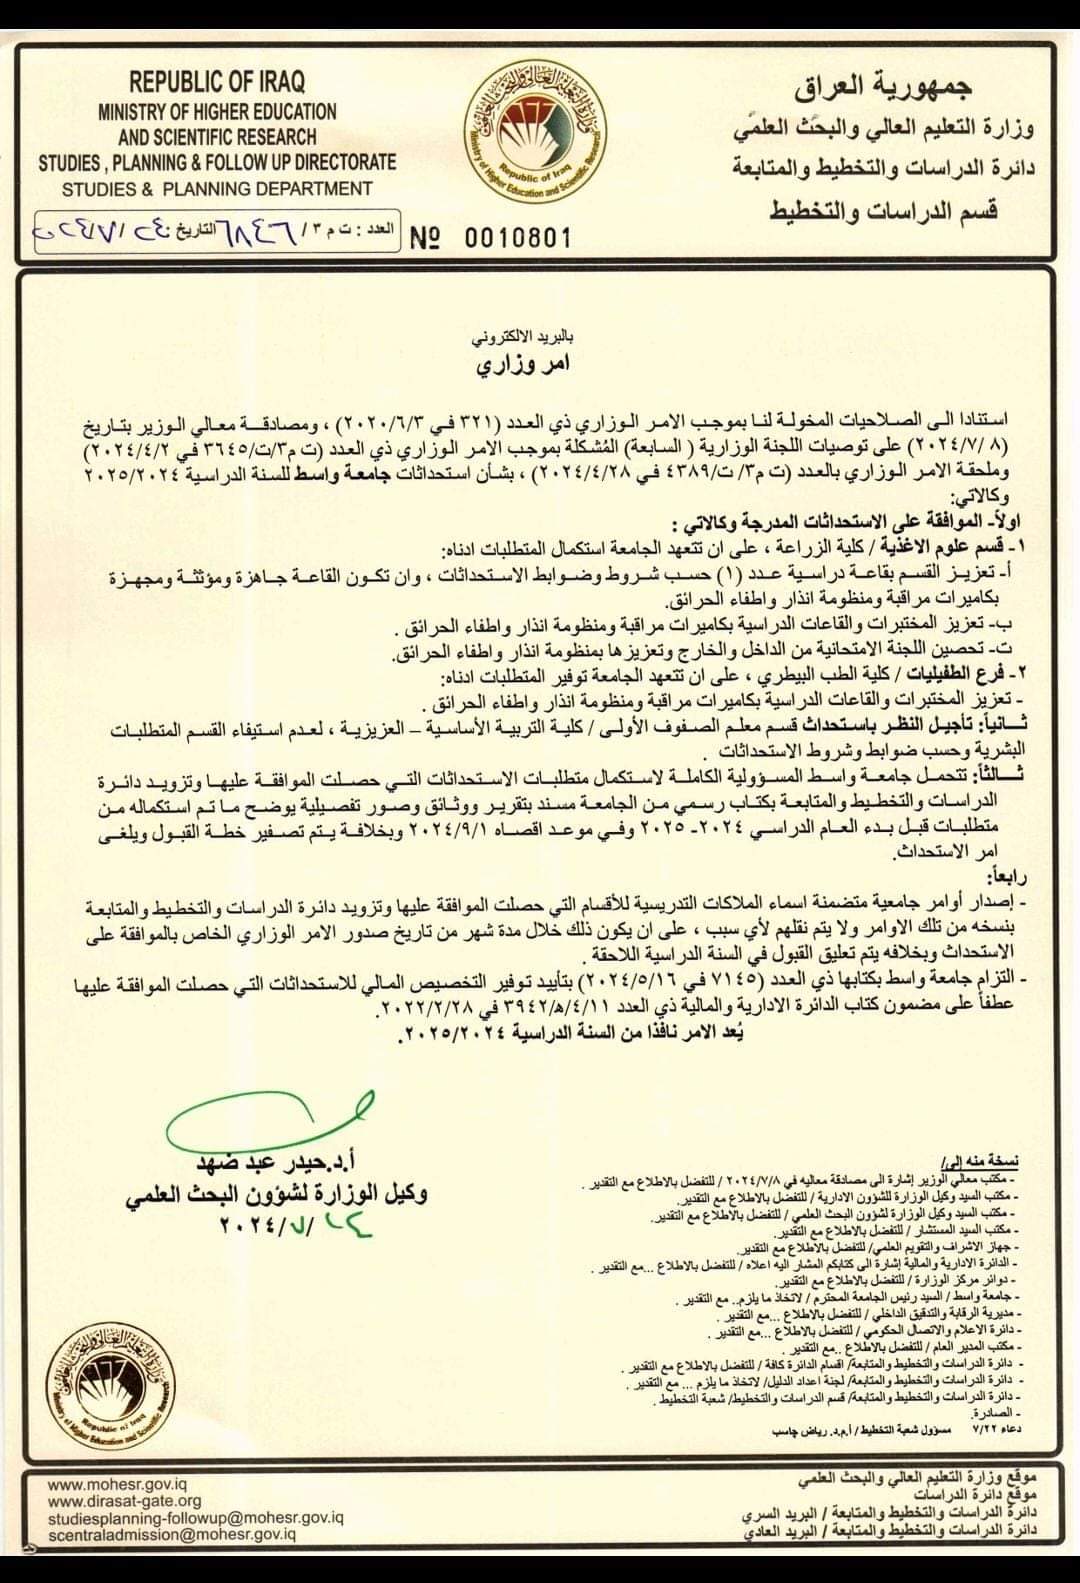 REPUBLIC OF IRAQ
MINISTRY OF HIGHER EDUCATION
AND SCIENTIFIC RESEARCH
STUDIES , PLANNING & FOLLOW UP DIRECTORATE
STUDIES & PLANNING DEPARTMENT
جمهورية العراق
وزارة التعليم العالي والبحث العلمي
دائرة الدراسات والتخطيط والمتابعة
قسم الدراسات والتخطيط
العدد : ت م ٣ / التاريخ
Nº 0010801
بالبريد الالكتروني
امر وزاري
استنادا الى الصلاحيات المخولة لنا بموجب الامر الوزاري ذي العدد (٣٢١ في ٢٠٢٠/٦/٣) ، ومصادقة معالي الوزير بتاريخ
(٢٠٢٤/٧/ ٨) على توصيات اللجنة الوزارية ( السابعة) المُشكلة بموجب الامر الوزاري ذي العدد (ت م٣/ت/٣٦٤٥ في ٢٠٢٤/٤/٢)
وملحقة الامر الوزاري بالعدد (ت م٣/ ت/٤٣٨٩ في ٢٠٢٤/٤/٢٨) ، بشأن استحداثات جامعة واسط للسنة الدراسية ٢٠٢٥/٢٠٢٤
وكالاتي:
اولاً- الموافقة على الاستحداثات المدرجة وكالاتي :
١- قسم علوم الاغذية / كلية الزراعة ، على ان تتعهد الجامعة استكمال المتطلبات ادناه:
أ- تعزيز القسم بقاعة دراسية عدد (١) حسب شروط وضوابط الاستحداثات ، وان تكون القاعة جاهزة ومؤثثة ومجهزة
بكاميرات مراقبة ومنظومة انذار واطفاء الحرائق.
ب- تعزيز المختبرات والقاعات الدراسية بكاميرات مراقبة ومنظومة انذار واطفاء الحرائق .
ت- تحصين اللجنة الامتحانية من الداخل والخارج وتعزيزها بمنظومة انذار واطفاء الحرائق.
٢- فرع الطفيليات / كلية الطب البيطري ، على ان تتعهد الجامعة توفير المتطلبات ادناه:
- تعزيز المختبرات والقاعات الدراسية بكاميرات مراقبة ومنظومة انذار واطفاء الحرائق .
ثانياً: تأجيل النظر باستحداث قسم معلم الصفوف الأولى / كلية التربية الأساسية – العزيزية ، لعدم استيفاء القسم المتطلبات
البشرية وحسب ضوابط وشروط الاستحداثات .
ثالثاً: تتحمل جامعة واسط المسؤولية الكاملة لاستكمال متطلبات الاستحداثات التي حصلت الموافقة عليها وتزويد دائرة
الدراسات والتخطيط والمتابعة بكتاب رسمي من الجامعة مسند بتقرير ووثائق وصور تفصيلية يوضح ما تم استكماله من
متطلبات قبل بدء العام الدراسي ٢٠٢٤- ٢٠٢٥ وفي موعد اقصاه ٢٠٢٤/٩/١ وبخلافة يتم تصفير خطة القبول ويلغى
امر الاستحداث.
رابعاً:
- إصدار أوامر جامعية متضمنة اسماء الملاكات التدريسية للأقسام التي حصلت الموافقة عليها وتزويد دائرة الدراسات والتخطيط والمتابعة
بنسخه من تلك الاوامر ولا يتم نقلهم لأي سبب ، على ان يكون ذلك خلال مدة شهر من تاريخ صدور الامر الوزاري الخاص بالموافقة على
الاستحداث وبخلافه يتم تعليق القبول في السنة الدراسية اللاحقة .
- التزام جامعة واسط بكتابها ذي العدد (٧١٤٥ في ٢٠٢٤/٥/١٦) بتأييد توفير التخصيص المالي للاستحداثات التي حصلت الموافقة عليها
عطفاً على مضمون كتاب الدائرة الادارية والمالية ذي العدد ٤/١١/ه/٣٩٤٢ في ٢٠٢٢/٢/٢٨.
يُعد الامر نافذا من السنة الدراسية ٢٠٢٥/٢٠٢٤.
أ.د.حيدر عبد ضهد
وكيل الوزارة لشؤون البحث العلمي
٢٠٢٤/٧/
نسخة منه إلى/
- مكتب معالي الوزير إشارة الى مصادقة معاليه في ٢٠٢٤/٧/٨ / للتفضل بالاطلاع مع التقدير .
- مكتب السيد وكيل الوزارة للشؤون الادارية / للتفضل بالاطلاع مع التقدير.
- مكتب السيد وكيل الوزارة لشؤون البحث العلمي / للتفضل بالاطلاع مع التقدير.
- مكتب السيد المستشار / للتفضل بالاطلاع مع التقدير.
- جهاز الاشراف والتقويم العلمي/ للتفضل بالاطلاع مع التقدير.
- الدائرة الادارية والمالية إشارة الى كتابكم المشار اليه اعلاه / للتفضل بالاطلاع ...مع التقدير .
- دوائر مركز الوزارة / للتفضل بالاطلاع مع التقدير.
- جامعة واسط / السيد رئيس الجامعة المحترم / لاتخاذ ما يلزم.. مع التقدير .
- مديرية الرقابة والتدقيق الداخلي / للتفضل بالاطلاع ...مع التقدير .
- دائرة الاعلام والاتصال الحكومي / للتفضل بالاطلاع ...مع التقدير .
- مكتب المدير العام / للتفضل بالاطلاع ..مع التقدير .
- دائرة الدراسات والتخطيط والمتابعة/ اقسام الدائرة كافة / للتفضل بالاطلاع مع التقدير .
- دائرة الدراسات والتخطيط والمتابعة/ لجنة اعداد الدليل/ لاتخاذ ما يلزم ... مع التقدير .
- دائرة الدراسات والتخطيط والمتابعة/ قسم الدراسات والتخطيط/ شعبة التخطيط .
- الصادرة.
دعاء ٧/٢٢ مسؤول شعبة التخطيط / أ.م.د. رياض جاسب
www.mohesr.gov.iq
www.dirasat-gate.org
studiesplanning-followup@mohesr.gov.iq
scentraladmission@mohesr.gov.iq
موقع وزارة التعليم العالي والبحث العلمي
موقع دائرة الدراسات
دائرة الدراسات والتخطيط والمتابعة / البريد السري
دائرة الدراسات والتخطيط والمتابعة / البريد العادي